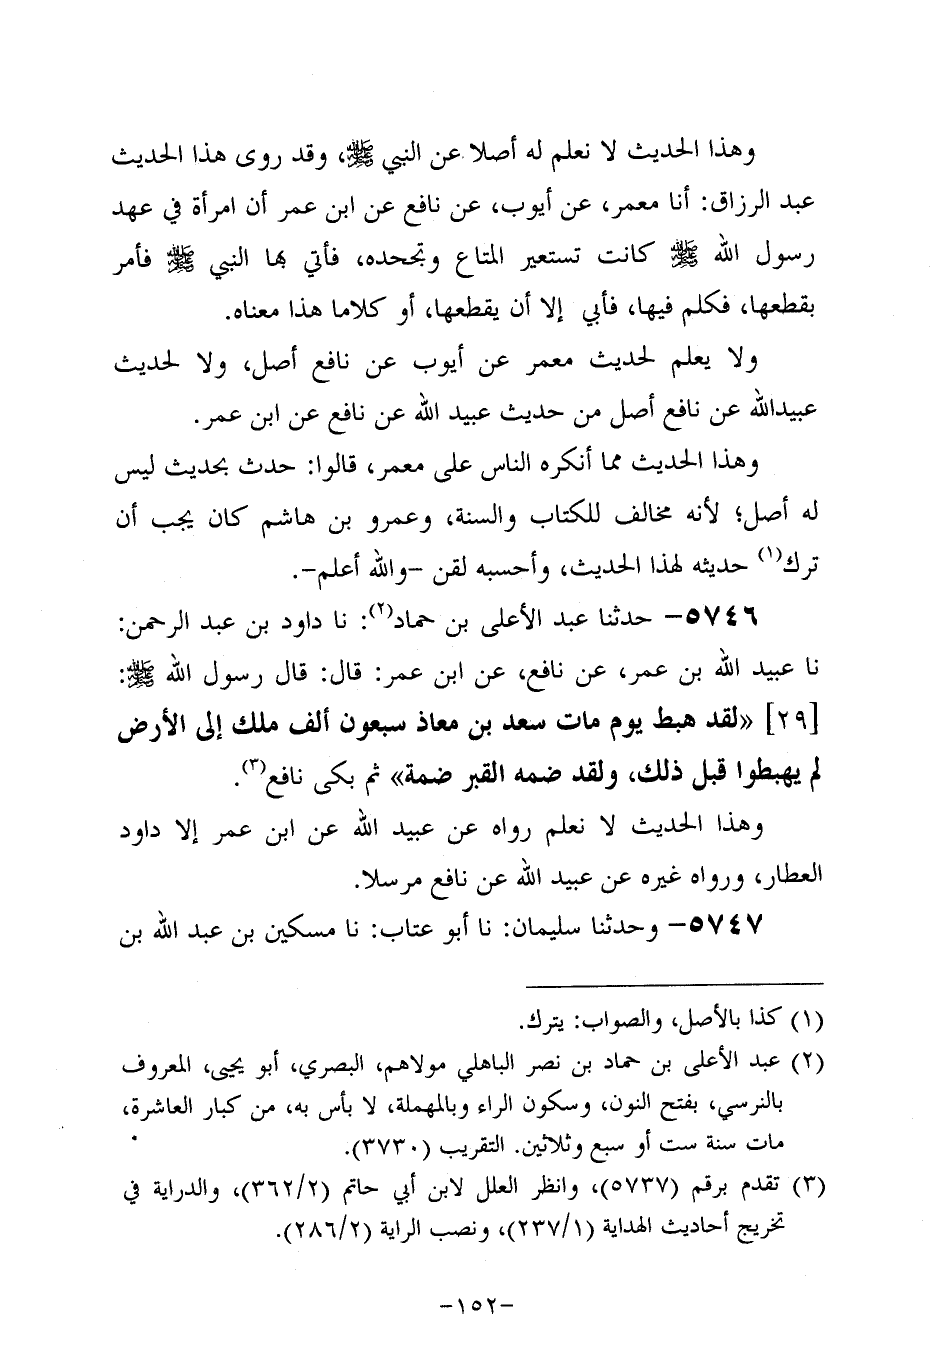 وهذا الحديث لا نعلم له أصلا عن النبي ﷺ، وقد روى هذا الحديث
عبد الرزاق: أنا معمر، عن أيوب، عن نافع عن ابن عمر أن امرأة في عهد
رسول الله ﷺ كانت تستعير المتاع وتجحده، فأتي بها النبي ﷺ فأمر
بقطعها، فكلم فيها، فأبي إلا أن يقطعها، أو كلاما هذا معناه.
ولا يعلم لحديث معمر عن أيوب عن نافع أصل، ولا لحديث
عبيدالله عن نافع أصل من حديث عبيد الله عن نافع عن ابن عمر.
وهذا الحديث مما أنكره الناس على معمر، قالوا: حدث بحديث ليس
له أصل؛ لأنه مخالف للكتاب والسنة، وعمرو بن هاشم كان يجب أن
ترك(١) حديثه لهذا الحديث، وأحسبه لقن -والله أعلم-.
٥٧٤٦- حدثنا عبد الأعلى بن حماد(٢): نا داود بن عبد الرحمن:
نا عبيد الله بن عمر، عن نافع، عن ابن عمر: قال: قال رسول الله ﷺ:
[٢٩] «لقد هبط يوم مات سعد بن معاذ سبعون ألف ملك إلى الأرض
لم يهبطوا قبل ذلك، ولقد ضمه القبر ضمة» ثم بكى نافع(٣).
وهذا الحديث لا نعلم رواه عن عبيد الله عن ابن عمر إلا داود
العطار، ورواه غيره عن عبيد الله عن نافع مرسلا.
٥٧٤٧- وحدثنا سليمان: نا أبو عتاب: نا مسكين بن عبد الله بن
(١) كذا بالأصل، والصواب: يترك.
(٢) عبد الأعلى بن حماد بن نصر الباهلي مولاهم، البصري، أبو يحيى، المعروف
بالنرسي، بفتح النون، وسكون الراء وبالمهملة، لا بأس به، من كبار العاشرة،
مات سنة ست أو سبع وثلاثين. التقريب (٣٧٣٠).
(٣) تقدم برقم (٥٧٣٧)، وانظر العلل لابن أبي حاتم (٣٦٢/٢)، والدراية في
تخريج أحاديث الهداية (٢٣٧/١)، ونصب الراية (٢٨٦/٢).
-١٥٢-